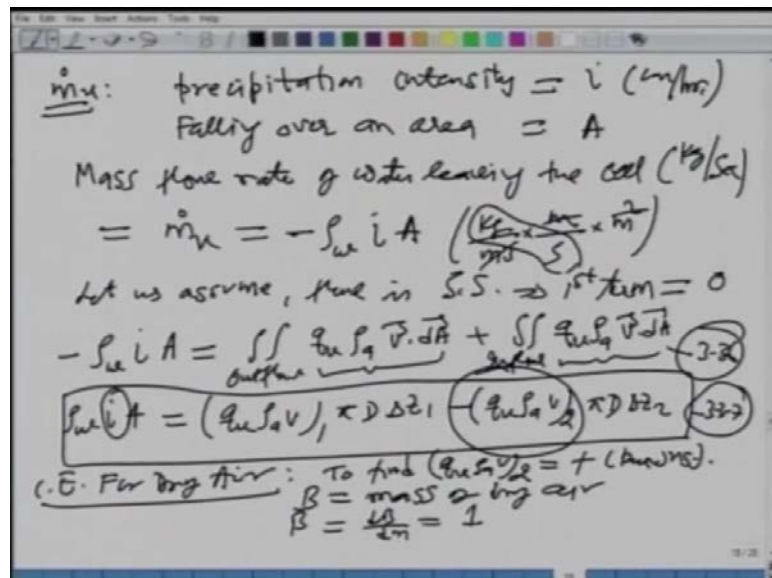 File Edit View Insert Actions Tools Help
ṁᵥ: precipitation intensity = i (cm/hr.)
Falling over an area = A
Mass flow rate of water leaving the cell (kg/sec)
= ṁᵥ = -ρw i A (kg/m³ × m/s × m²)
Let us assume, flow is S.S. ⇒ 1st term = 0
-ρw i A = ∬outflow qᵥ ρa V⃗.dA⃗ + ∬inflow qᵥ ρa V⃗.dA⃗ -3-32
ρw i A = (qᵥ ρa V)₁ π D ΔZ₁ - (qᵥ ρa V)₂ π D ΔZ₂ -33-
C.E. For Dry Air: To find (qᵥ ρa V)₂ = f (knowns).
B = mass of dry air
β = dB/dm = 1